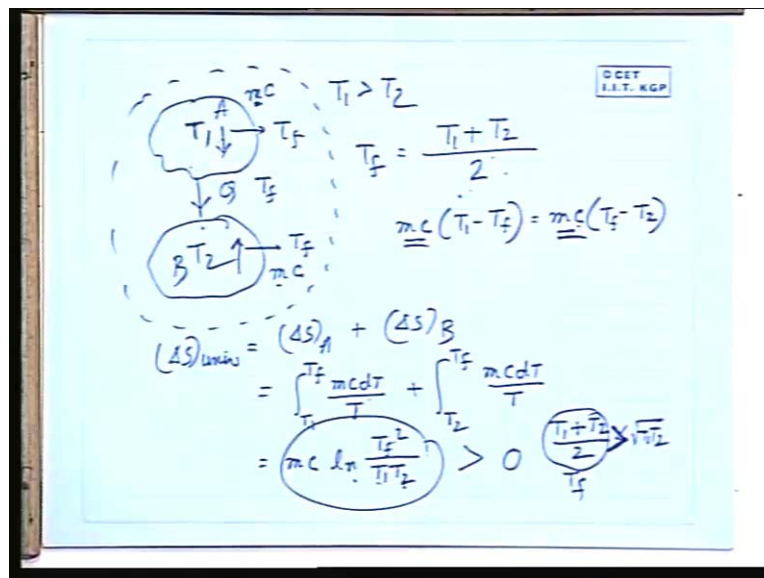 © CET
I.I.T. KGP
A
mC
T₁ > T₂
T₁ ↓ → T_f
T_f = (T₁ + T₂) / 2
Q T_f
mc(T₁ - T_f) = mc(T_f - T₂)
B T₂ ↑ → T_f
mC
(ΔS)univ = (ΔS)A + (ΔS)B
= ∫_{T₁}^{T_f} mcdT/T + ∫_{T₂}^{T_f} mcdT/T
= mc ln T_f²/T₁T₂ > 0
(T₁+T₂)/2 > √T₁T₂
T_f